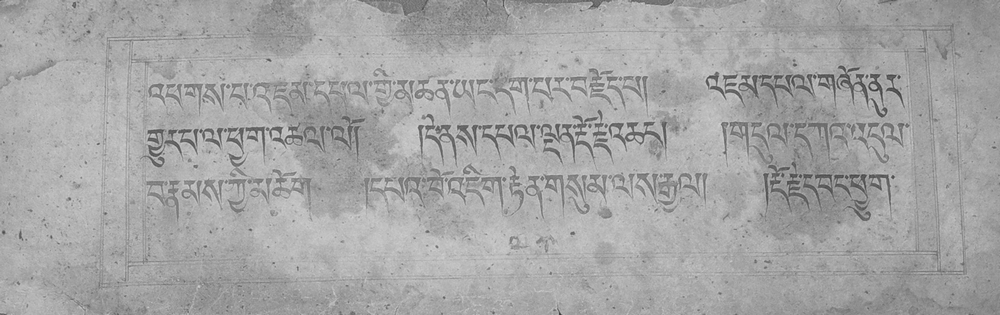 འཕགས་པ་འཇམ་དཔལ་གྱི་མཚན་ཡང་དག་པར་བརྗོད་པ། འཇམ་དཔལ་གཞོན་ནུར་
གྱུར་པ་ལ་ཕྱག་འཚལ་ལོ༎ །དེ་ནས་དཔལ་ལྡན་རྡོ་རྗེ་འཆང༌། །གདུལ་དཀའ་འདུལ་
བ་རྣམས་ཀྱི་མཆོག །དཔའ་བོ་འཇིག་རྟེན་གསུམ་ལས་རྒྱལ། །རྡོ་རྗེ་དབང་ཕྱུག་